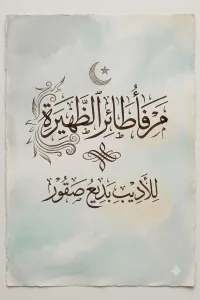 مَرْفَأُ طَائِرِ الظَّهِيرَةِ
لِلأَدِيبِ بَدِيعُ صَقُورْ